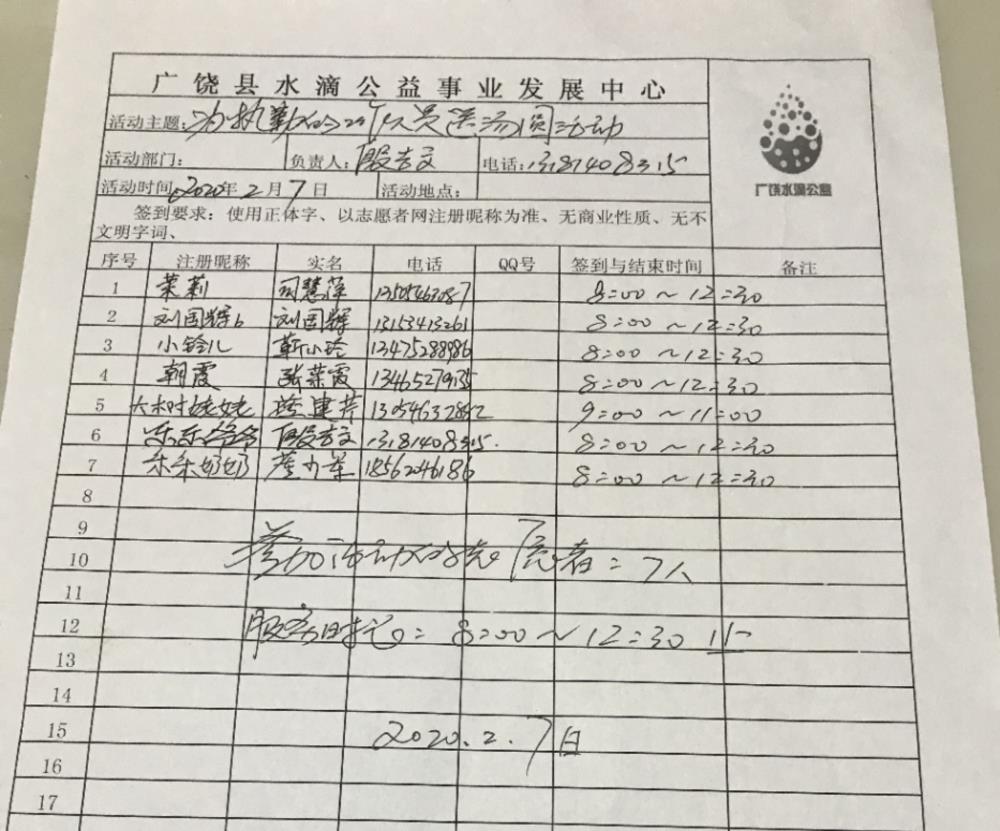 广饶县水滴公益事业发展中心
活动主题:为执勤的 人员送汤圆活动
活动部门: 负责人:殷吉文 电话:13181408315
活动时间:2020年2月7日 活动地点:
签到要求:使用正体字、以志愿者网注册昵称为准、无商业性质、无不
文明字词、
广饶水滴公益
序号 注册昵称 实名 电话 QQ号 签到与结束时间 备注
1 茉莉 司慧萍 13505463087 8:00~12:30
2 刘国辉b 刘国辉 13153413261 8:00~12:30
3 小铃儿 靳小玲 13475288986 8:00~12:30
4 朝霞 张荣霞 13465279135 8:00~12:30
5 大树姥姥 建芹 9:00~11:00
6 东东爷爷 殷吉文 13181408315. 8:00~12:30
7 18562046186 8:00~12:30
8
9
10 参加活动的志愿者:7人
11
12 服务时长:8:00~12:30
13
14
15 2020.2.7日
16
17